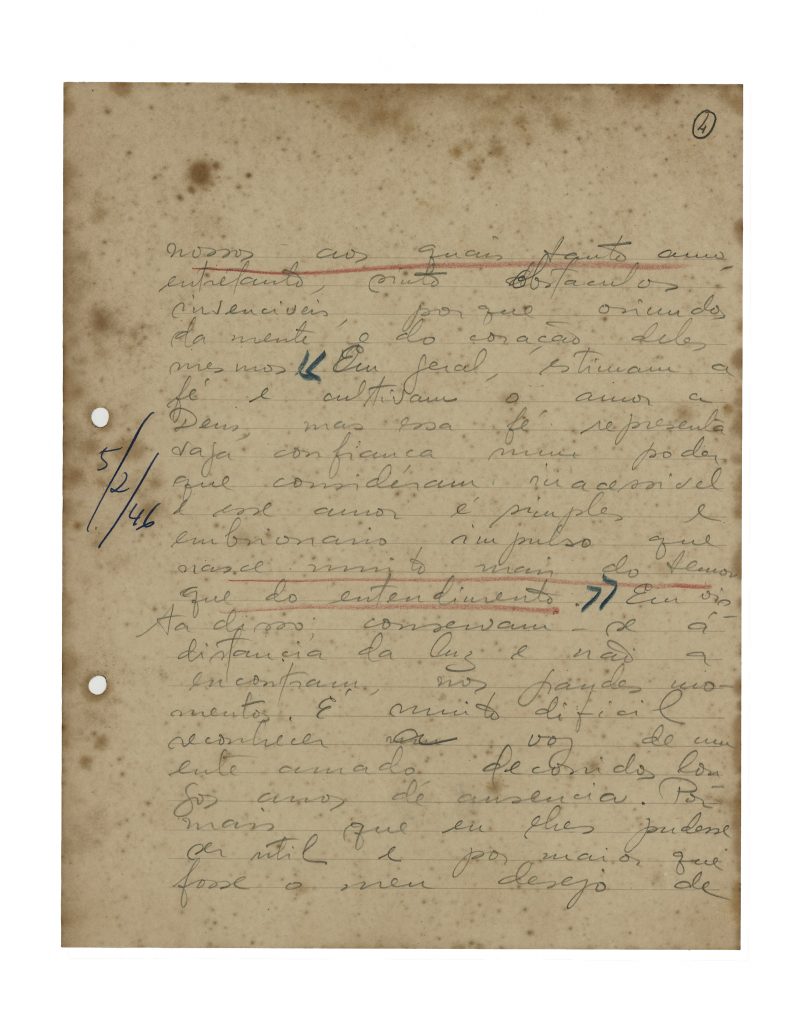 4
nossos aos quais tanto amo,
entretanto, sinto obstaculos
invenciveis, porque oriundos
da mente e do coração deles
mesmos. « Em geral, estimam a
fé e cultivam o amor a
Deus, mas essa fé representa
vaga confiança num poder
que consideram inacessivel
e esse amor é simples e
embrionario impulso que
nasce muito mais do temor
que do entendimento. » Em vis-
ta disso, conservam-se á
distancia da luz e não a
encontram, nos grandes mo-
mentos. É muito dificil
reconhecer a voz de um
ente amado decorridos lon-
gos anos de ausencia. Por
mais que eu lhes pudesse
ser util e por maior que
fosse o meu desejo de
5/2/46